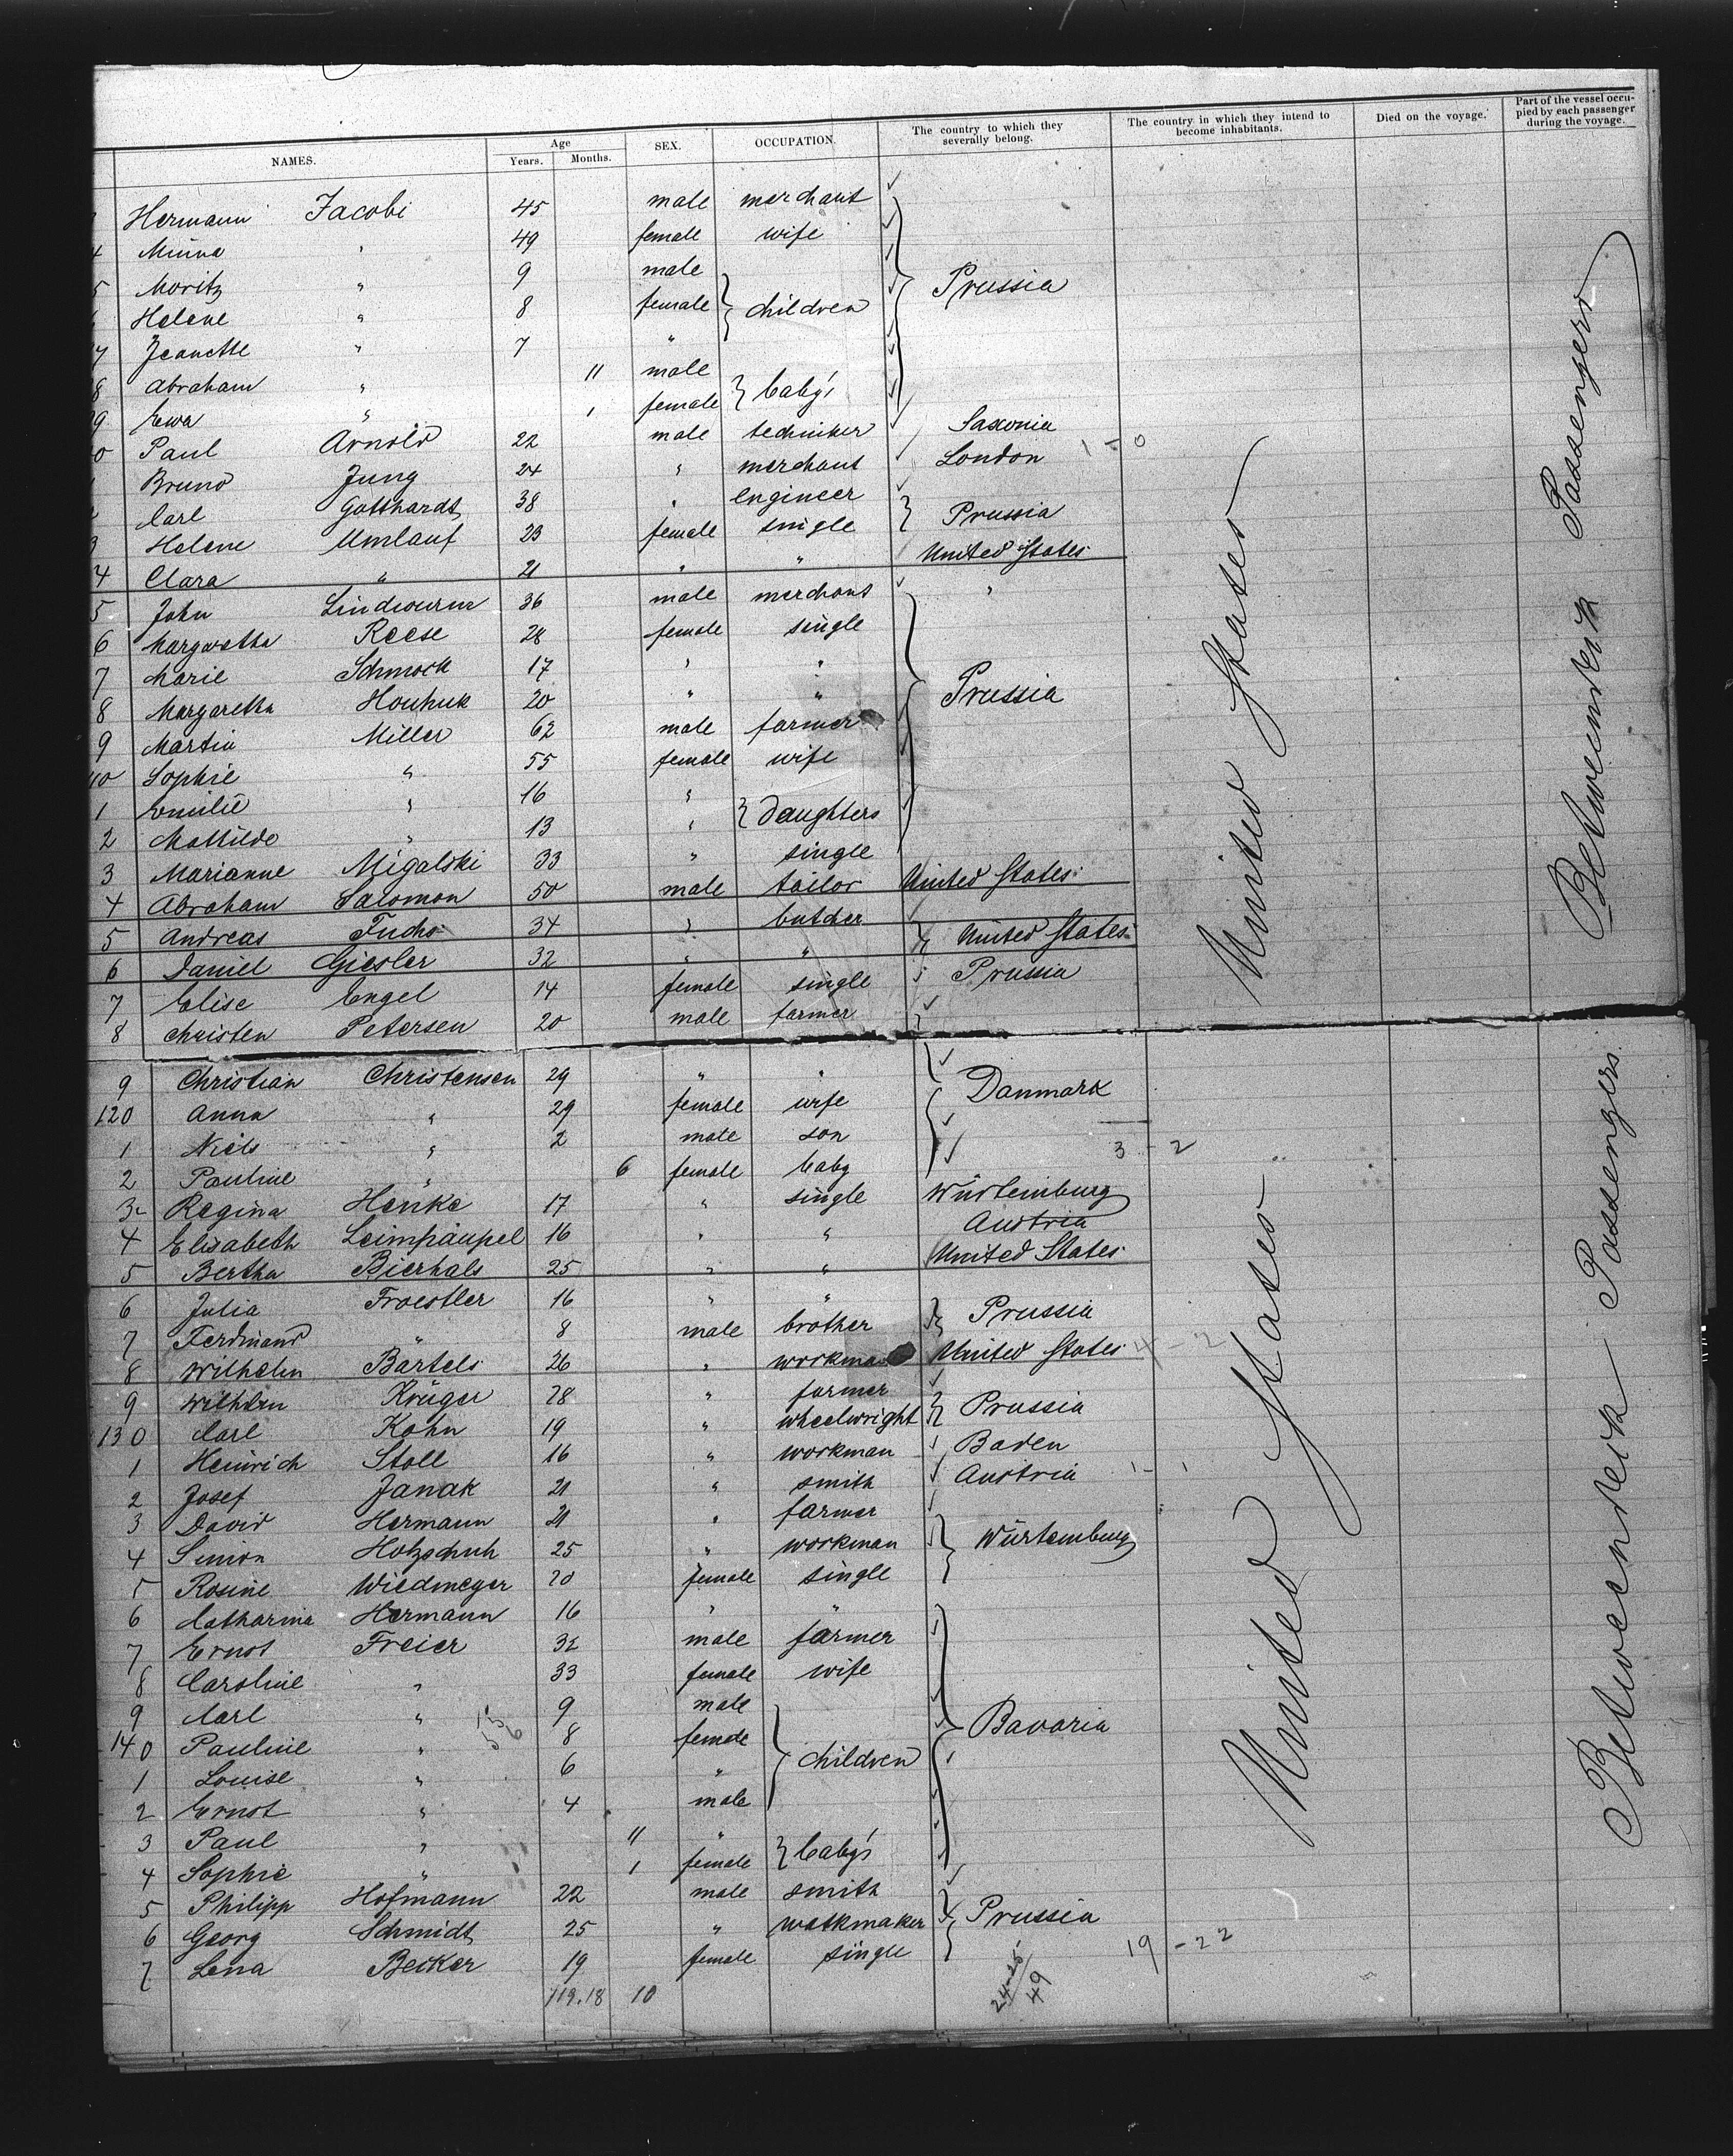 NAMES. Age Years. Months. SEX. OCCUPATION. The country to which they severally belong. The country in which they intend to become inhabitants. Died on the voyage. Part of the vessel occupied by each passenger during the voyage.
Hermann Jacobi 45 male merchant
4 Minna " 49 female wife
5 Moritz " 9 male
Helene " 8 female children Prussia
7 Jeanette " 7 "
8 Abraham " 11 male
9 Ewa " 1 female baby's
0 Paul Arnold 22 male techniker Saxonia
Bruno Jung 24 " merchant London 1-0
Carl Gotthardt 38 " engineer
3 Helene Umlauf 23 female single Prussia
4 Clara " 21 " " United States
5 John Lindwurm 36 male merchant "
6 Margaretha Reese 28 female single
7 Marie Schmock 17 " "
8 Margaretha 20 " " Prussia
9 Martin Miller 62 male farmer
110 Sophie " 55 female wife
1 Emilie " 16 "
2 Mathilde " 13 " daughters
3 Marianne Migalski 33 " single
4 Abraham Salomon 50 male tailor United States
5 Andreas Fuchs 34 " butcher
6 Daniel Giesler 32 " " United States
7 Elise Engel 14 female single Prussia
8 Christen Petersen 20 male farmer
United States
Betweendeck Passengers
9 Christian Christensen 29 " "
120 Anna " 29 female wife Danmark
1 Niels " 2 male son 3-2
2 Pauline " 6 female baby
3 Regina Henke 17 " single Würtemburg
4 Elisabeth Leimpaupel 16 " " Austria
5 Bertha Bierhals 25 " " United States
6 Julia Froestler 16 " "
7 Ferdinand " 8 male brother Prussia
8 Wilhelm Bartels 26 " workman United States 4-2
9 Wilhelm Krüger 28 " farmer
130 Carl Kohn 19 " wheelwright Prussia
1 Heinrich Stoll 16 " workman Baden
2 Josef Janak 21 " smith Austria 1-1
3 David Hermann 21 " farmer
4 Simon Holzschuh 25 " workman Würtemburg
5 Rosine Wiedmeyer 20 female single
6 Catharina Hermann 16 " "
7 Ernst Freier 32 male farmer
8 Caroline " 33 female wife
9 Carl " 9 male
140 Pauline " 8 female Bavaria
1 Louise " 6 " children
2 Ernst " 4 male
3 Paul " 11 "
4 Sophie " 1 female baby's
5 Philipp Hofmann 22 male smith
6 Georg Schmidt 25 " watkmaker Prussia
7 Lena Becker 19 female single 19-22
119.18 10 24-25 49
United States
Betweendeck Passengers